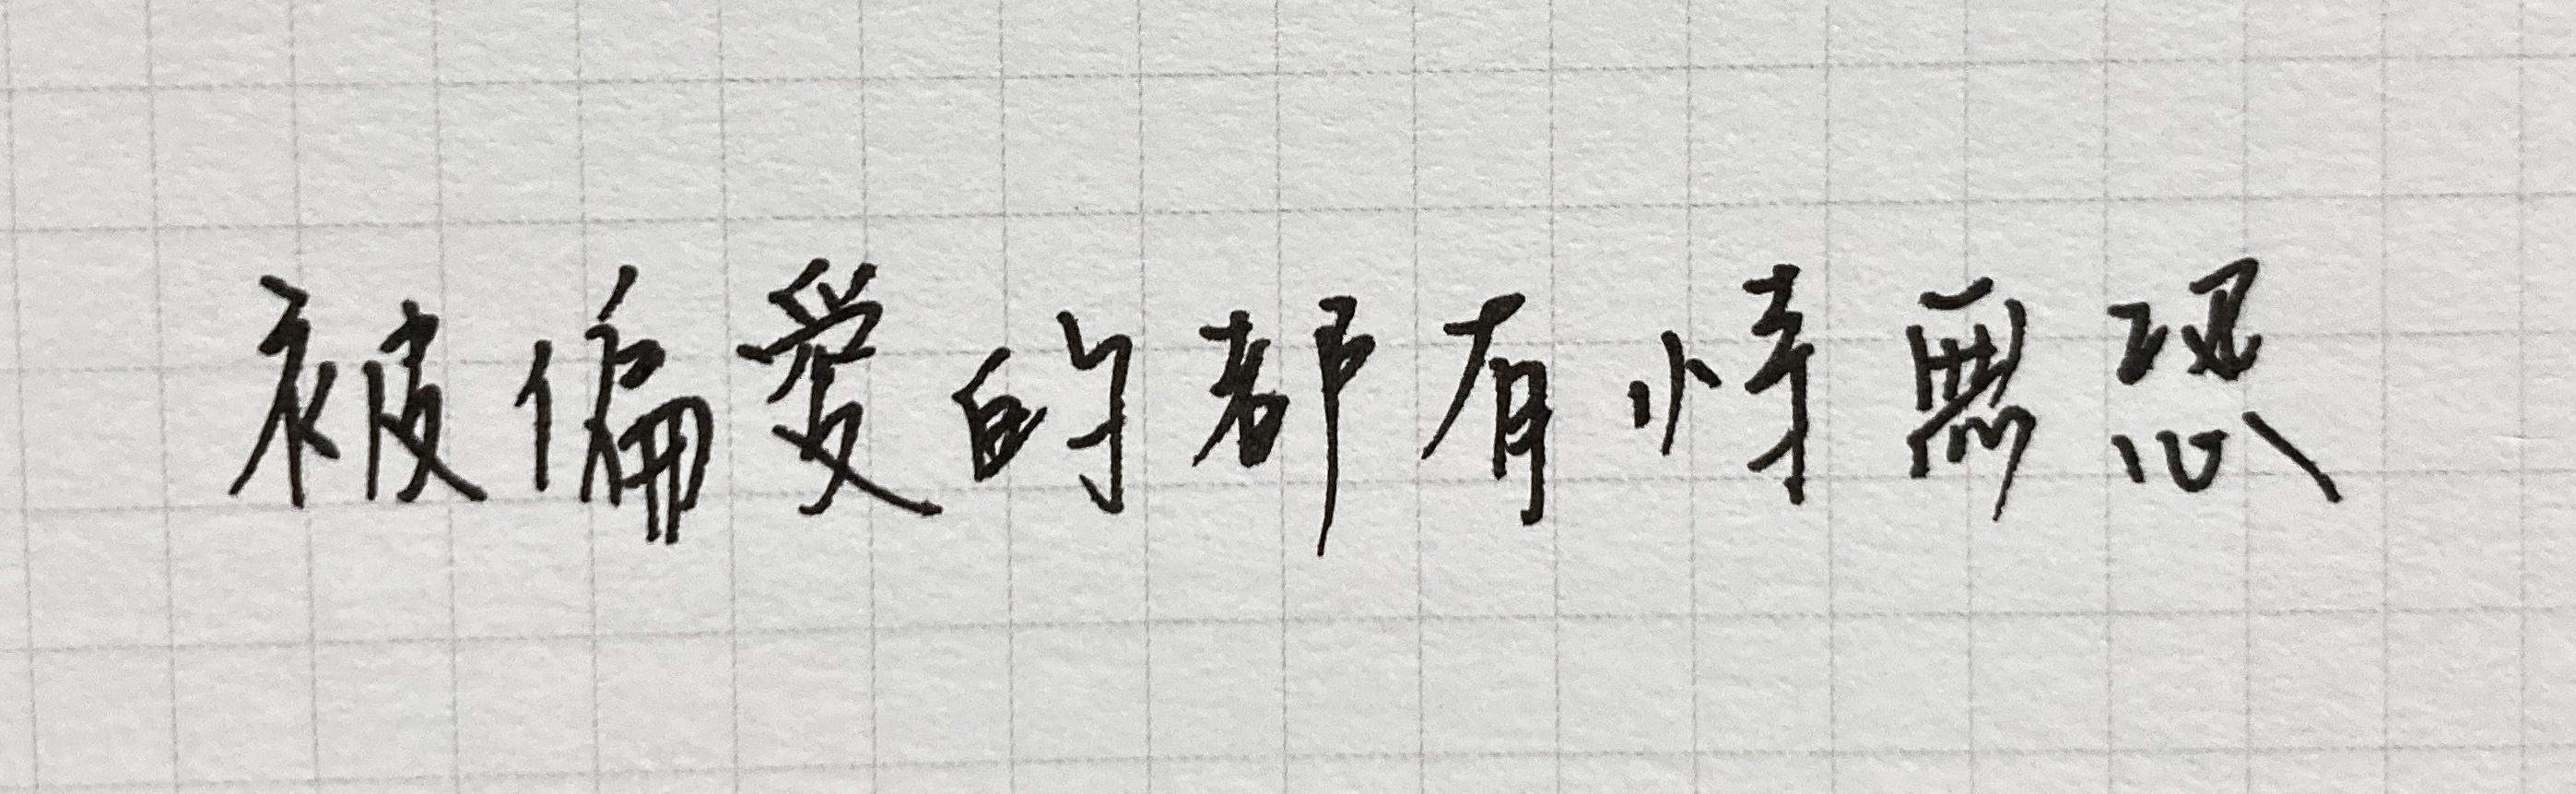 被偏爱的都有恃無恐